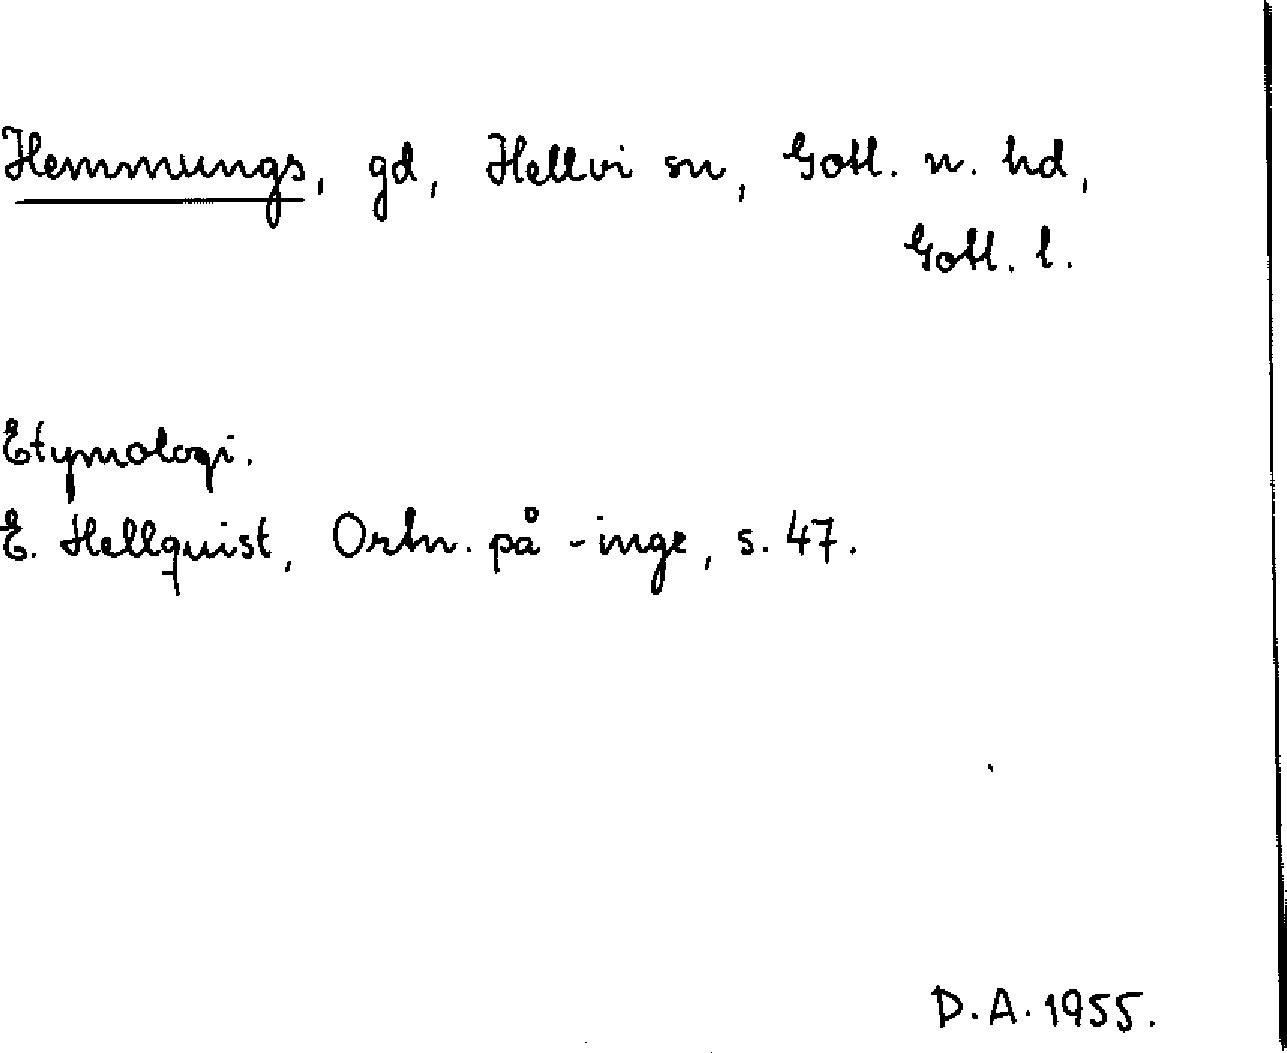 Hemmungs, gd, Hellvi sn, Gotl. n. hd,
Gotl. l.
Etymologi.
E. Hellquist, Ortn. på -inge, s. 47.
D.A. 1955.